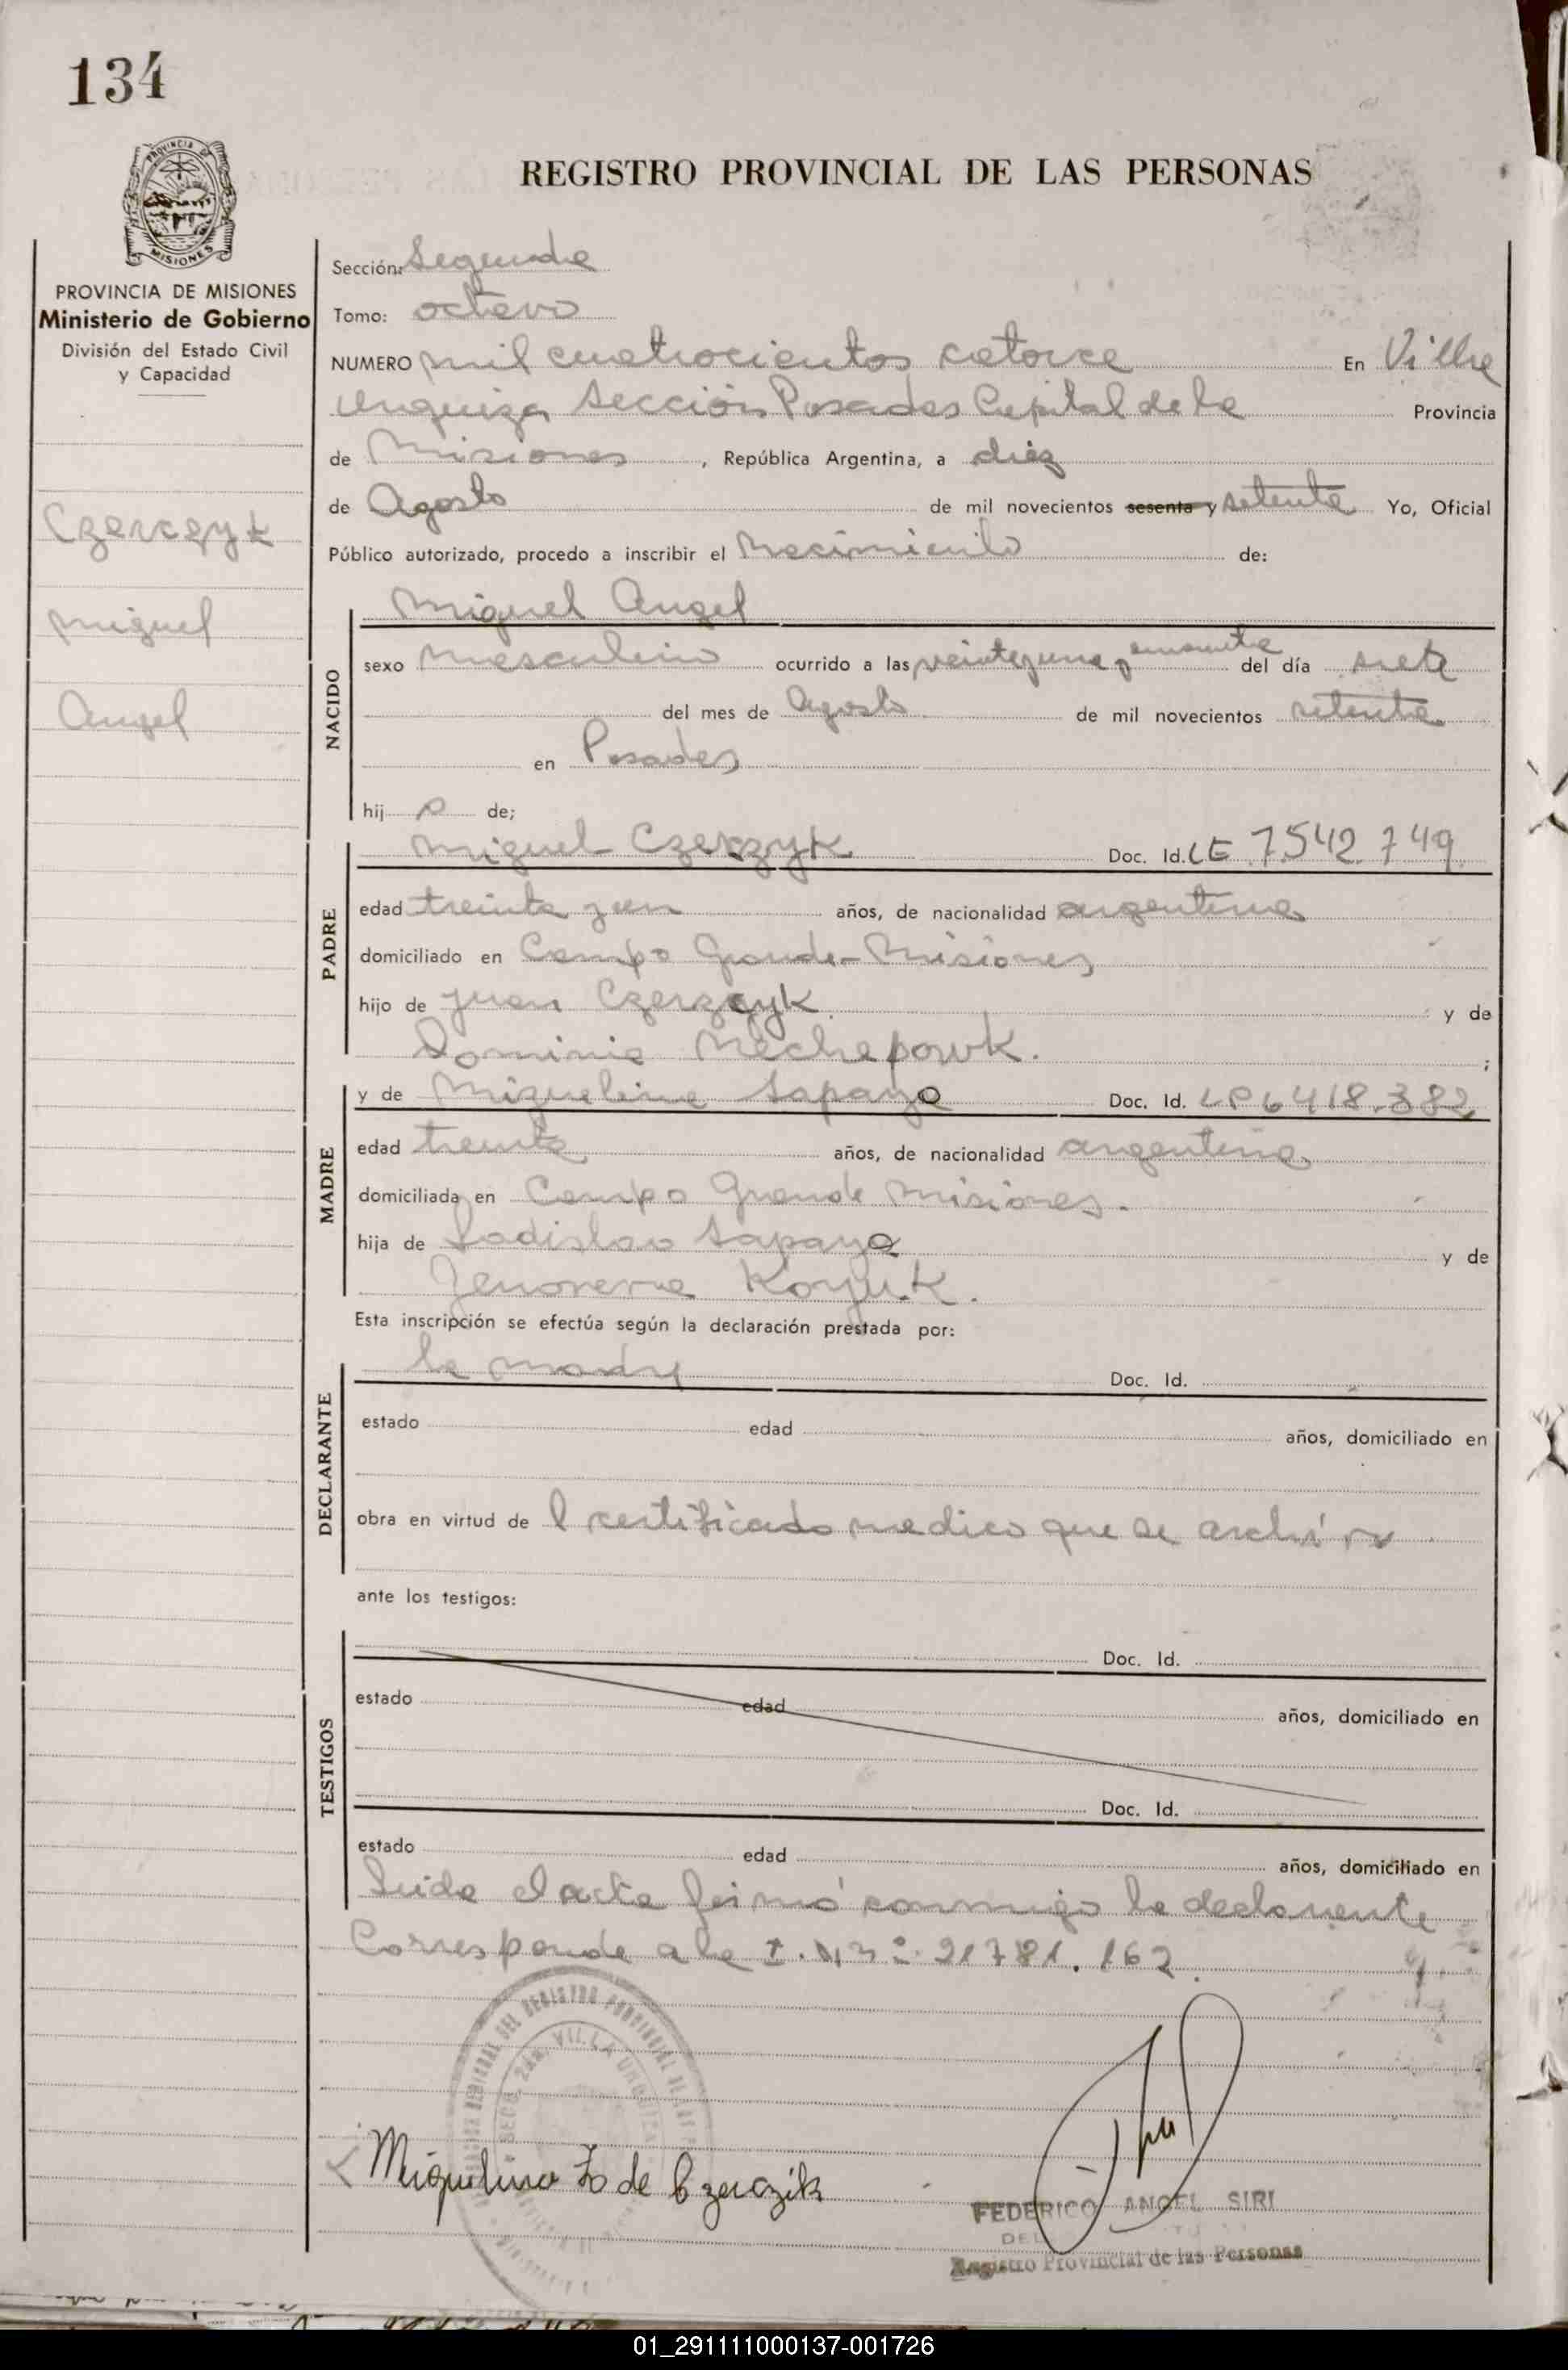 134
REGISTRO PROVINCIAL DE LAS PERSONAS
PROVINCIA DE MISIONES
Ministerio de Gobierno
División del Estado Civil
y Capacidad
Czerczyk
Miguel
Angel
Sección: Segunda
Tomo: octavo
NUMERO mil cuatrocientos catorce En Villa
Urquiza Sección Posadas Capital de la Provincia
de Misiones, República Argentina, a diez
de Agosto de mil novecientos sesenta y setenta Yo, Oficial
Público autorizado, procedo a inscribir el Nacimiento de:
Miguel Angel
NACIDO
sexo masculino ocurrido a las veinteyuna y cuarenta del día siete
del mes de Agosto de mil novecientos setenta
en Posadas
hij o de;
PADRE
Miguel Czerzyk Doc. Id. LE 7.542.749
edad treinta y un años, de nacionalidad argentina
domiciliado en Campo Grande - Misiones
hijo de Juan Czerzcyk y de
Dominia ;
MADRE
y de Miguelina Sapaya Doc. Id. LC 6418.382
edad treinta años, de nacionalidad argentina
domiciliada en Campo Grande Misiones.
hija de Ladislao Sapaya y de
Jenoveva
Esta inscripción se efectúa según la declaración prestada por:
DECLARANTE
la madre Doc. Id.
estado edad años, domiciliado en
obra en virtud de l certificado medico que se archiva
ante los testigos:
TESTIGOS
Doc. Id.
estado edad años, domiciliado en
Doc. Id.
estado edad años, domiciliado en
Leida el acta firmó conmigo la declarante
Corresponde a la 21781.162.
Miguelina de Czerczik
FEDERICO ANGEL SIRI
DEL
Registro Provincial de las Personas
01_291111000137-001726